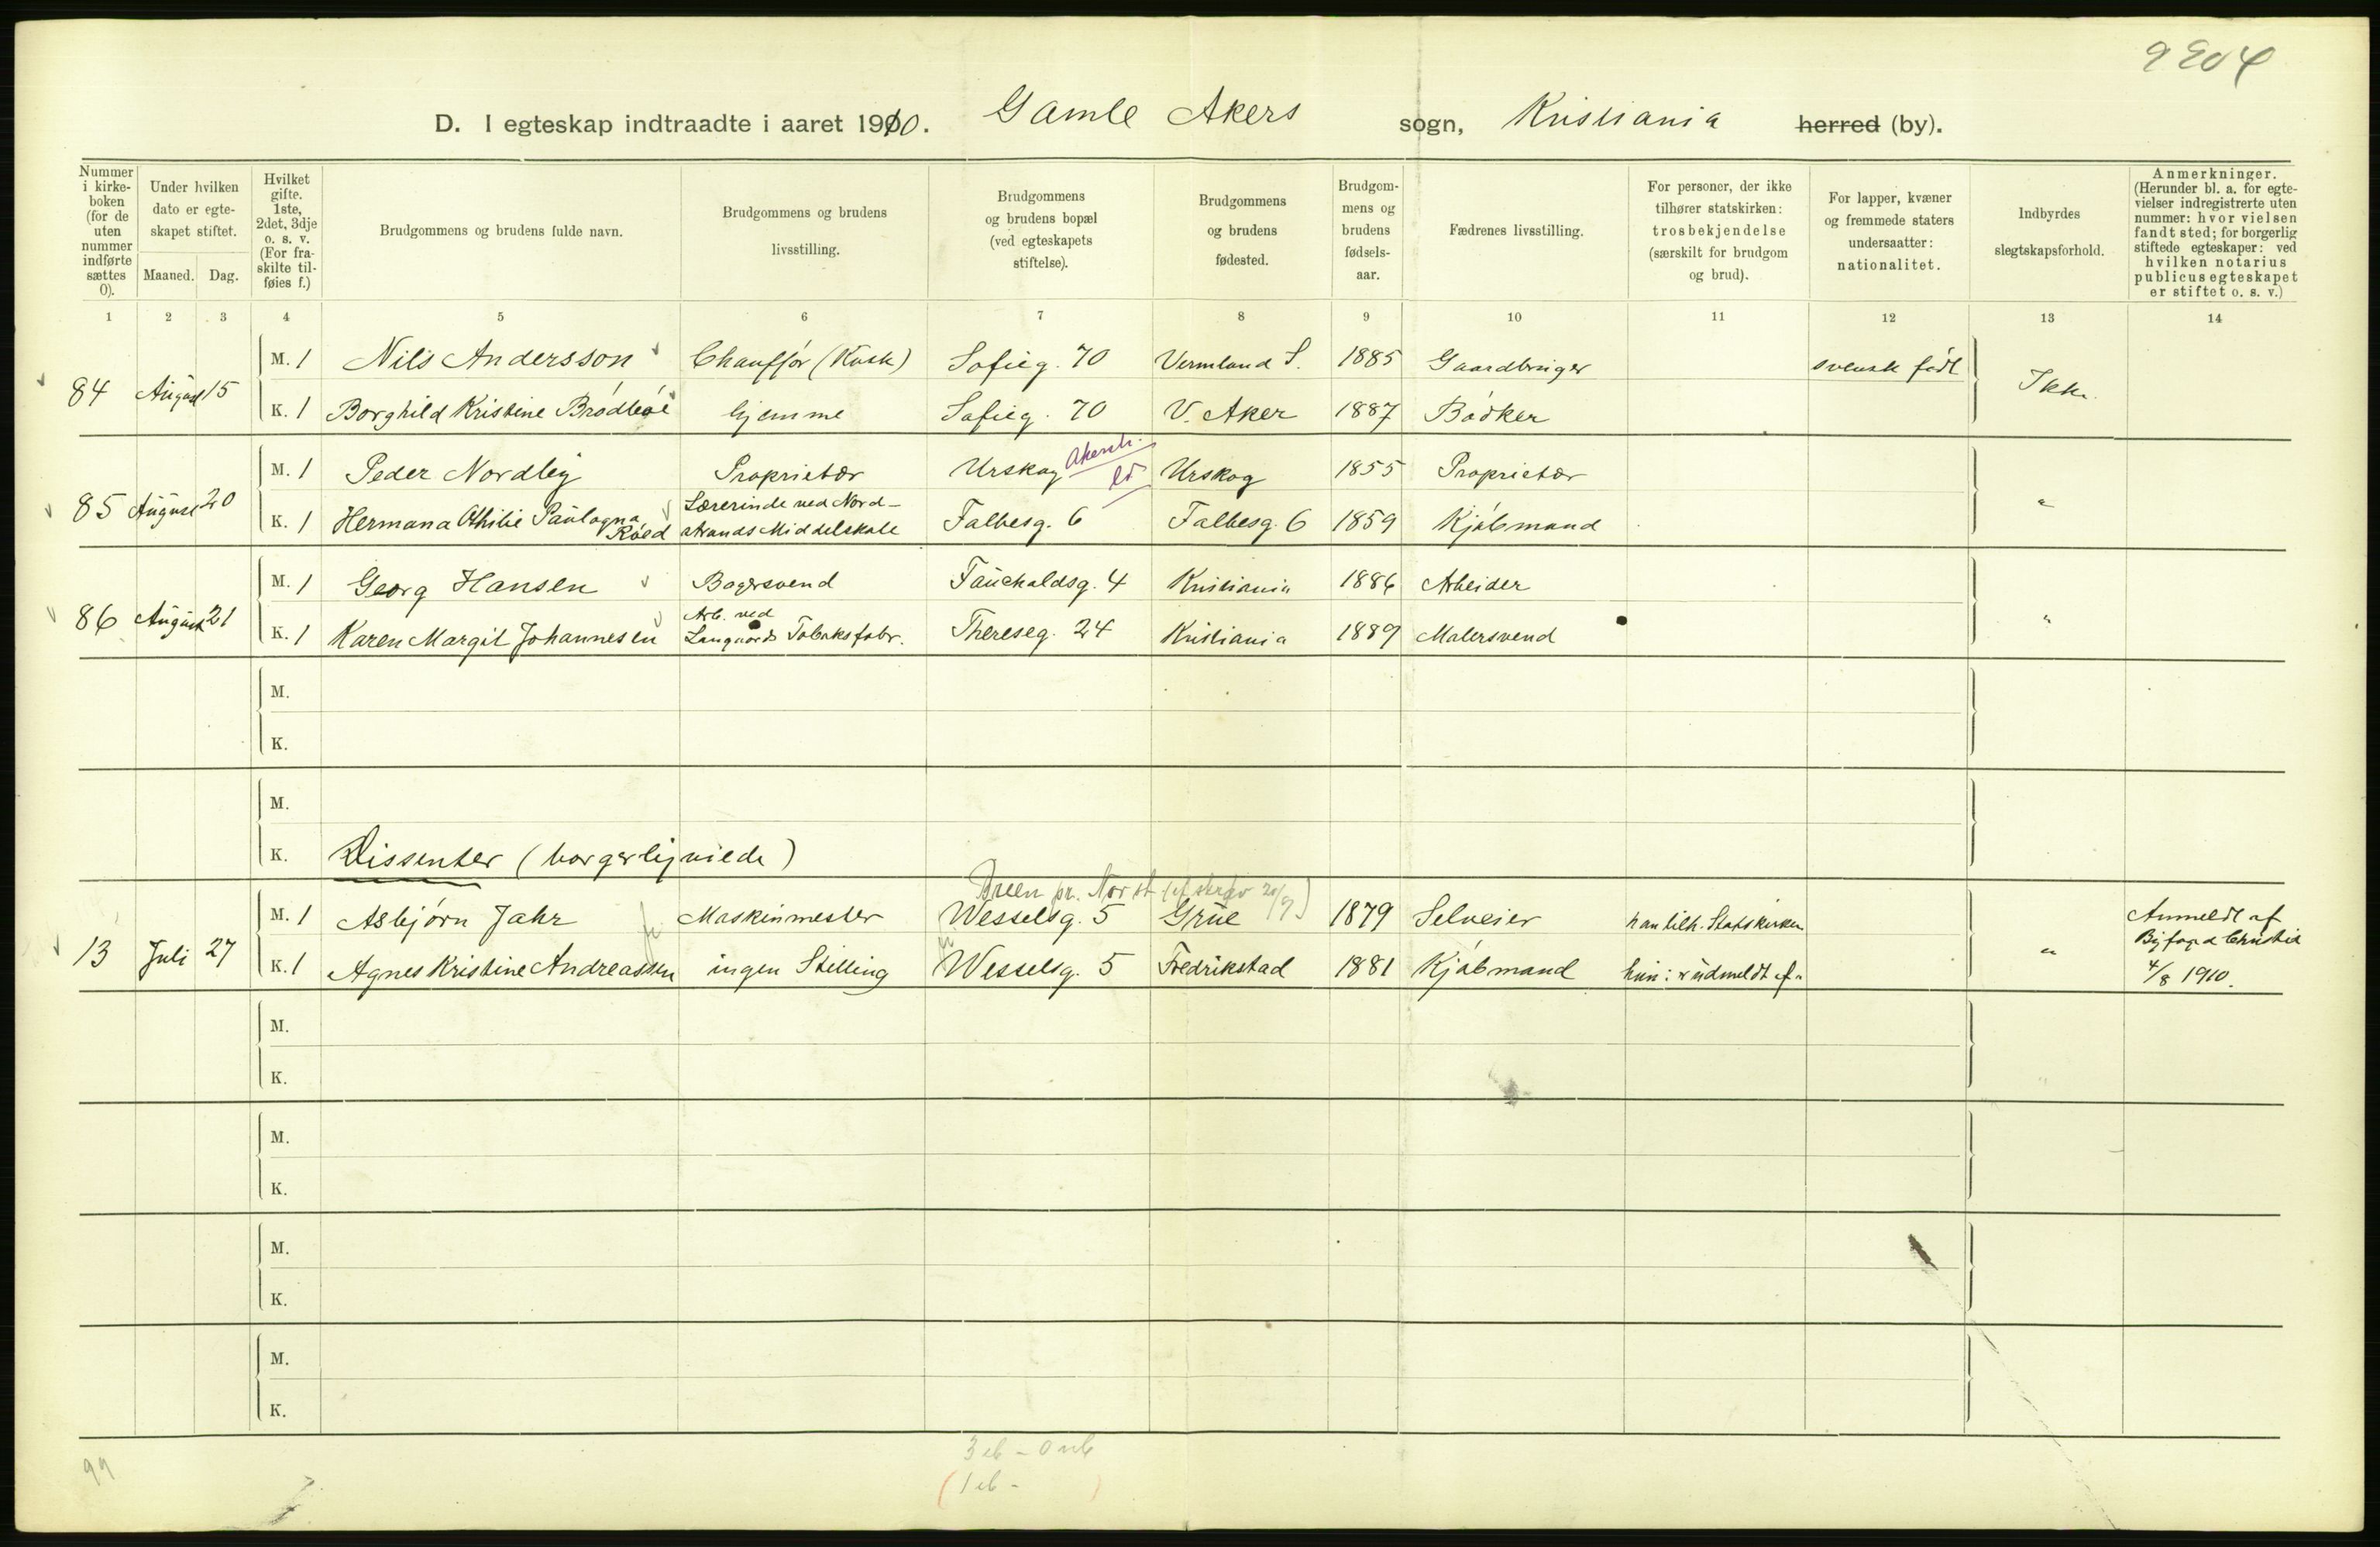 9204
D. I egteskap indtraadte i aaret 1910. Gamle Akers sogn, Kristiania herred (by).
Nummer i kirkeboken (for de uten nummer indførte sættes 0).
Under hvilken dato er egteskapet stiftet.
Maaned. Dag.
Hvilket gifte. 1ste, 2det, 3dje o. s. v. (For fraskilte tilføies f.)
Brudgommens og brudens fulde navn.
Brudgommens og brudens livsstilling.
Brudgommens og brudens bopæl (ved egteskapets stiftelse).
Brudgommens og brudens fødested.
Brudgommens og brudens fødselsaar.
Fædrenes livsstilling.
For personer, der ikke tilhører statskirken: trosbekjendelse (særskilt for brudgom og brud).
For lapper, kvæner og fremmede staters undersaatter: nationalitet.
Indbyrdes slegtskapsforhold.
Anmerkninger. (Herunder bl. a. for egtevielser indregistrerte uten nummer: hvor vielsen fandt sted; for borgerlig stiftede egteskaper: ved hvilken notarius publicus egteskapet er stiftet o. s. v.)
1 2 3 4 5 6 7 8 9 10 11 12 13 14
84 August 15
M. 1 Nils Andersson Chauffør (Kusk) Sofieg. 70 Vermland S. 1885 Gaardbruger svensk født
K. 1 Borghild Kristine Sofieg. 70 V. Aker 1887 Bødker
hjemme
Ikke
85 August 20
M. 1 Peder Nordby Proprietær Urskog Akersh. Urskog 1855 Proprietær
K. 1 Hermana Othilie Paulagna Røed Lærerinde ved Nordstrands Middelskole Falbesg. 6 Falbesg. 6 1859 Kjøbmand "
86 August 21
M. 1 Georg Hansen Bagersvend Fauchaldsg. 4 Kristiania 1886 Arbeider
K. 1 Karen Margit Johannesen Arb. ved Langaards Tobaksfabr. Thereseg. 24 Kristiania 1889 Malersvend "
M.
K.
M.
K. Dissenter (borgerlig viede)
13 Juli 27
M. 1 Asbjørn Jahr Maskinmester Wesselsg. 5 Grue 1879 Selveier han tilh. Statskirken
K. 1 Agnes Kristine Andreassen ingen Stilling Wesselsg. 5 Fredrikstad 1881 Kjøbmand hun: udmeldt af " "
Anmeldt af
Byfogd Christia
4/8 1910.
M.
K.
M.
K.
M.
K.
M.
K.
3 eb - 0 ub
(1 eb - )
99